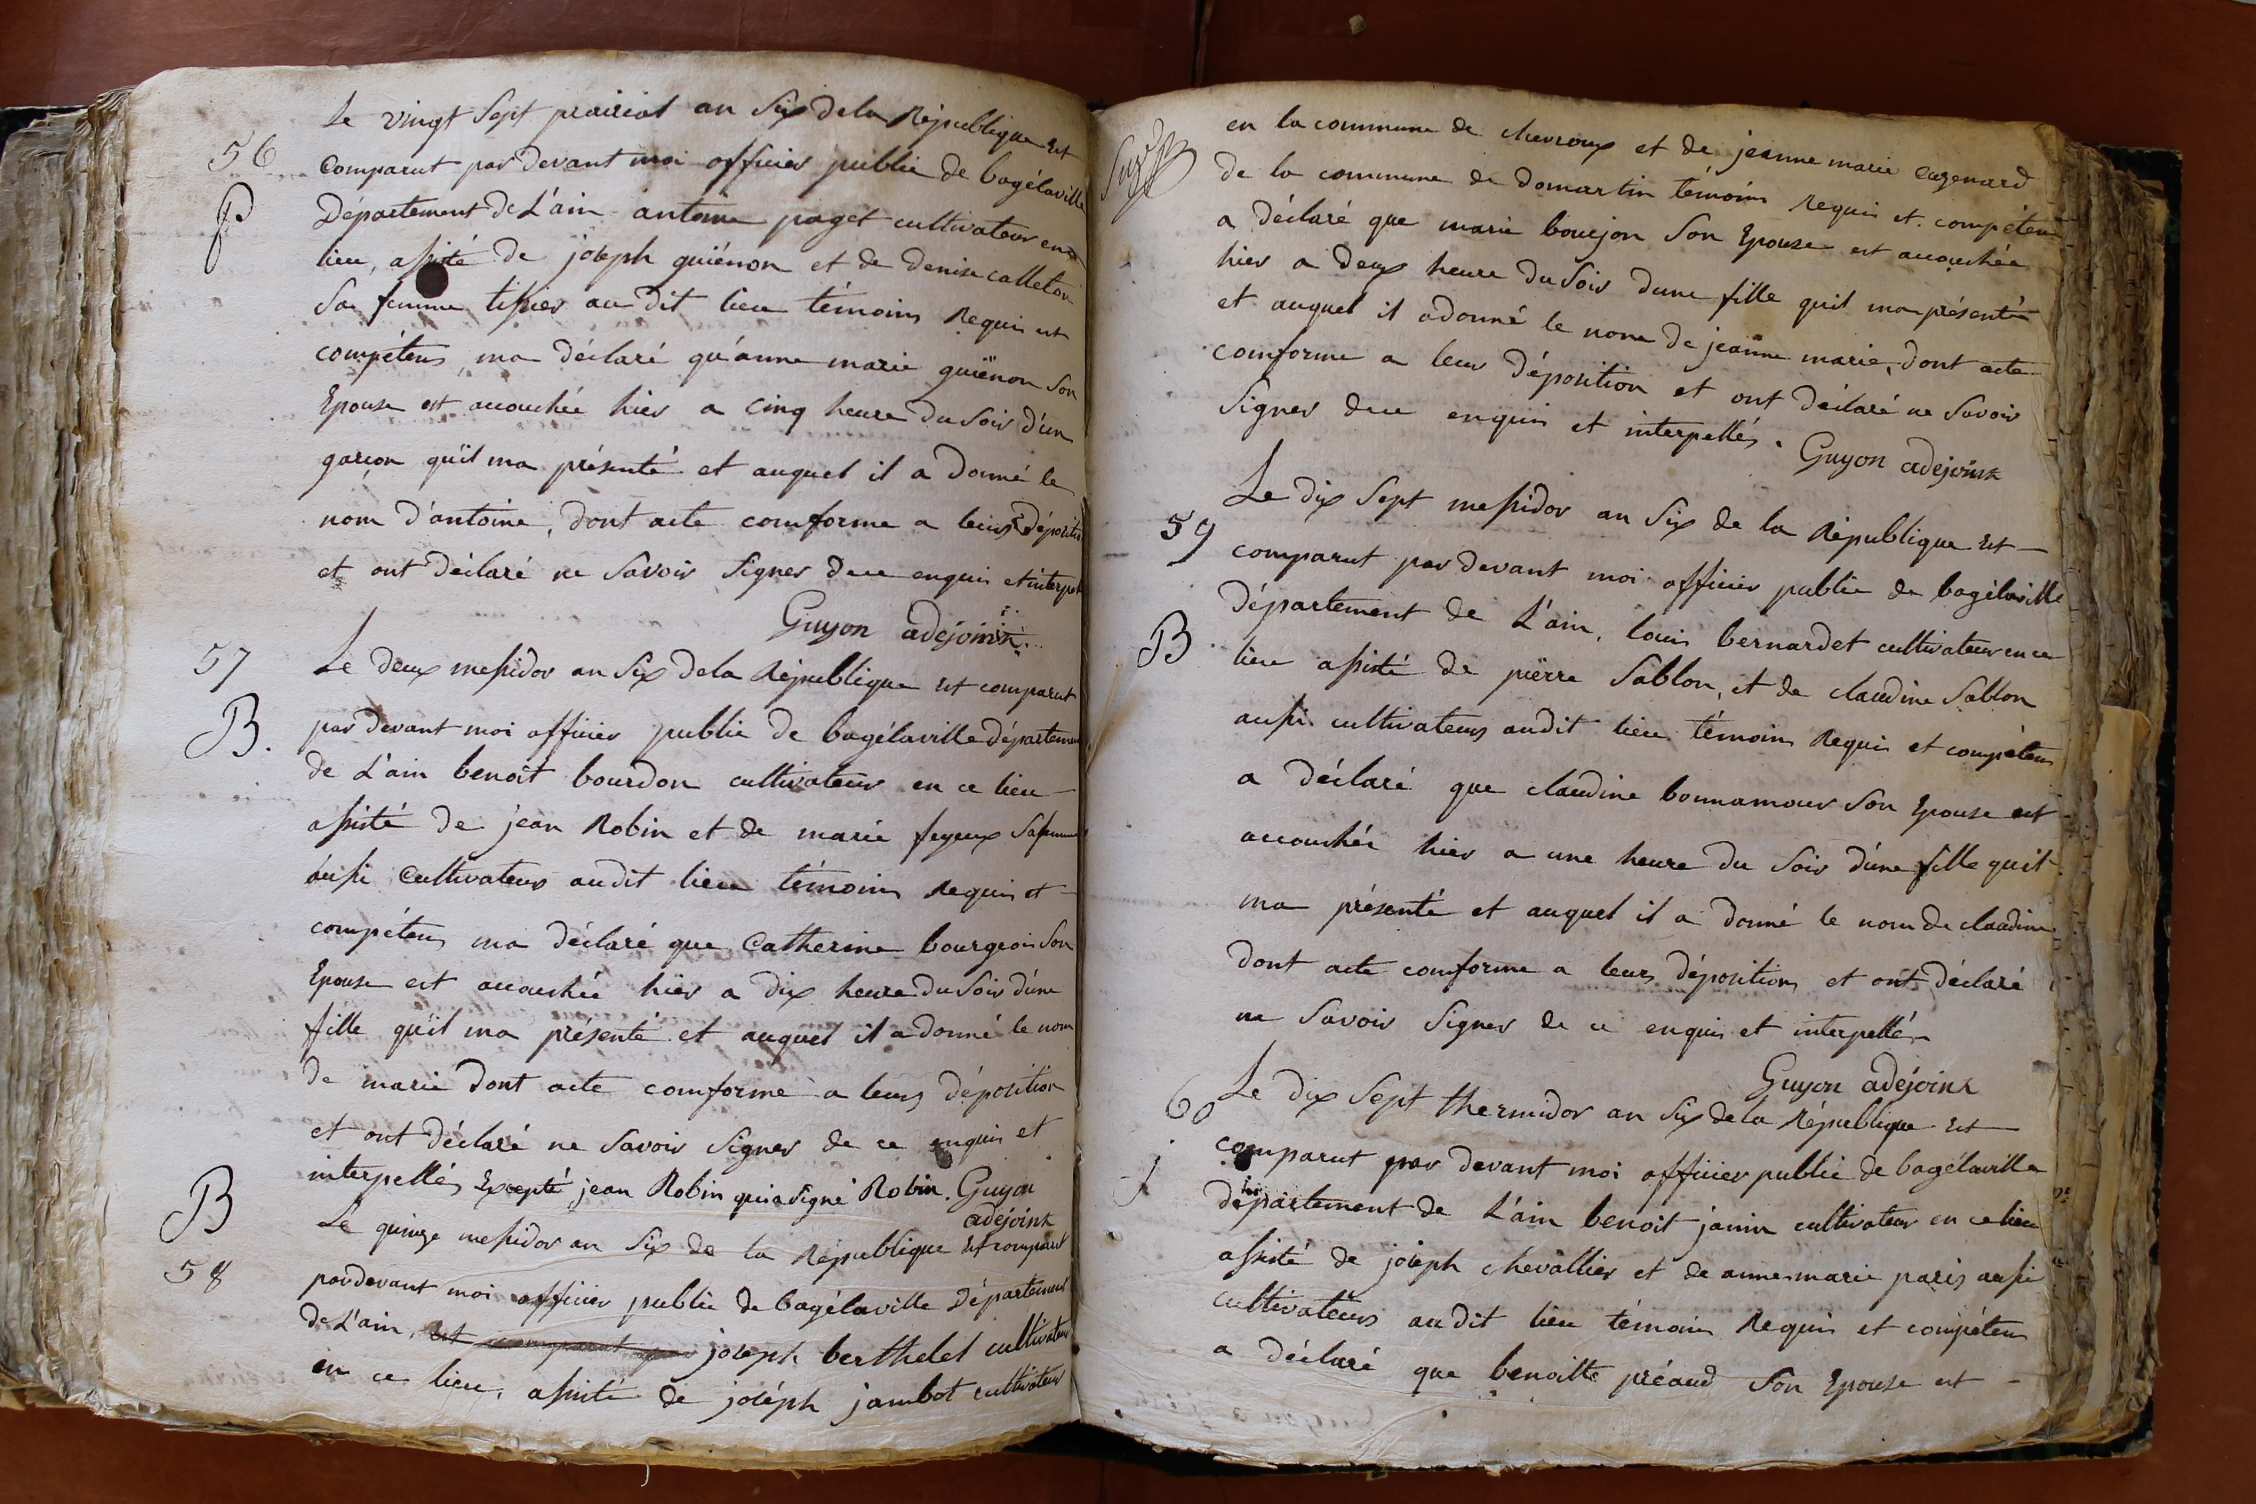 Le vingt Sept prairial an Six dela République Est
56
Comparut par devant moi officier public de bagélaville
P
Département de L'ain antoine paget cultivateur en ce
lieu, assisté de joseph guiénon et de denise calleton
Sa femme tissier au dit lieu témoins Requis et
compétens, ma déclaré qu'anne marie guiénon Son
Epouse est accouchée hier a cinq heure du Soir d'un
garcon qu'il ma présenté et auquel il a Donné le
nom d'antoine, dont acte comforme a leurs déposition
et ont déclaré ne Savoir Signer dece enquis et interpel
Guyon adejoint
57
Le deux messidor an Six dela République Est comparut
B.
par devant moi officier public de bagélaville département
de L'ain benoît bourdon cultivateur en ce lieu
assisté de jean Robin et de marie feyeux Safemme
aussi Cultivateurs audit lieu témoins Requis et
compétens ma déclaré que Catherine bourgeois Son
Epouse est accouchée hier a dix heure du Soir d'une
fille qu'il ma présenté et auquel il a donné le nom
de marie dont acte comforme a leurs déposition
et ont déclaré ne Savoir Signer de ce enquis et
interpellés Excepté jean Robin qui a Signé Robin. Guyon
adejoint
B
Le quinze messidor an Six de la République Est comparut
58
pardevant moi officier public de bagélaville Département
de L'ain, est comparut joseph berthelet cultivateur
en ce lieu, assisté de joséph jambot cultivateur
en la commune de chevroux et de jeanne marie
de la commune de domartin témoins Requis et compétens
a déclaré que marie bouejon Son Epouse est accouchée
hier a deux heure du Soir dune fille quil ma présenté
et auquel il adonné le nom de jeanne marie, dont acte
comforme a leur déposition et ont déclaré ne Savoir
Signer dece enquis et interpellés. Guyon adejoint
Le dix Sept messidor an Six de la République Est
59
comparut par devant moi officier public de bagélaville
Département de L'ain, louis bernardet cultivateur en ce
B
lieu assisté de pierre Sablon, et de claudine Sablon
aussi cultivateurs audit lieu témoins Requis et compétens
a déclaré que claudine bonnamour Son Epouse est
accouchée hier a une heure du Soir d'une fille quil
ma présenté et auquel il a donné le nom de claudine
dont acte comforme a leurs dépositions et ont déclaré
ne Savoir Signer de ce enquis et interpellé
Guyon adéjoint
60
Le dix Sept thermidor an Six dela République Est
comparut par devant moi officier public de bagélaville
j
département de L'ain benoit janin cultivateur en ce lieu
assisté de joseph chevallier et de anne marie paris aussi
cultivateurs audit lieu témoins Requis et compétens
a déclaré que benoitte préaud Son Epouse est